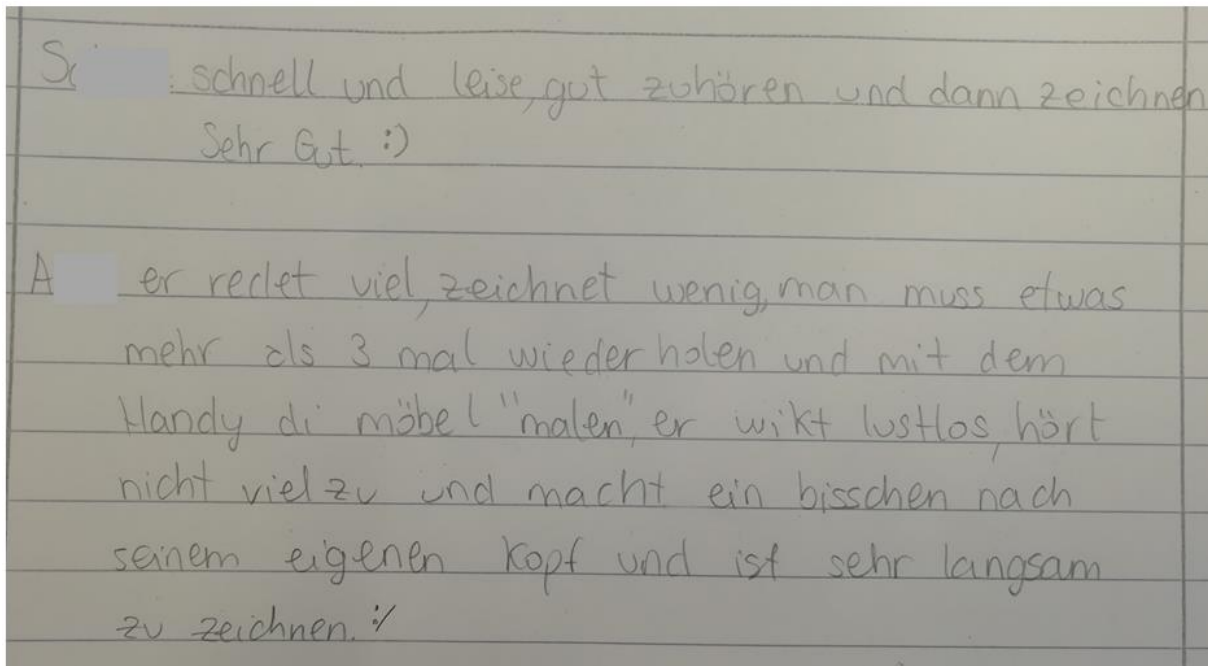 S schnell und leise, gut zuhören und dann zeichnen
Sehr Gut. :)
A er redet viel, zeichnet wenig, man muss etwas
mehr als 3 mal wiederholen und mit dem
Handy di möbel "malen", er wikt lustlos, hört
nicht viel zu und macht ein bisschen nach
seinem eigenen Kopf und ist sehr langsam
zu zeichnen. :/